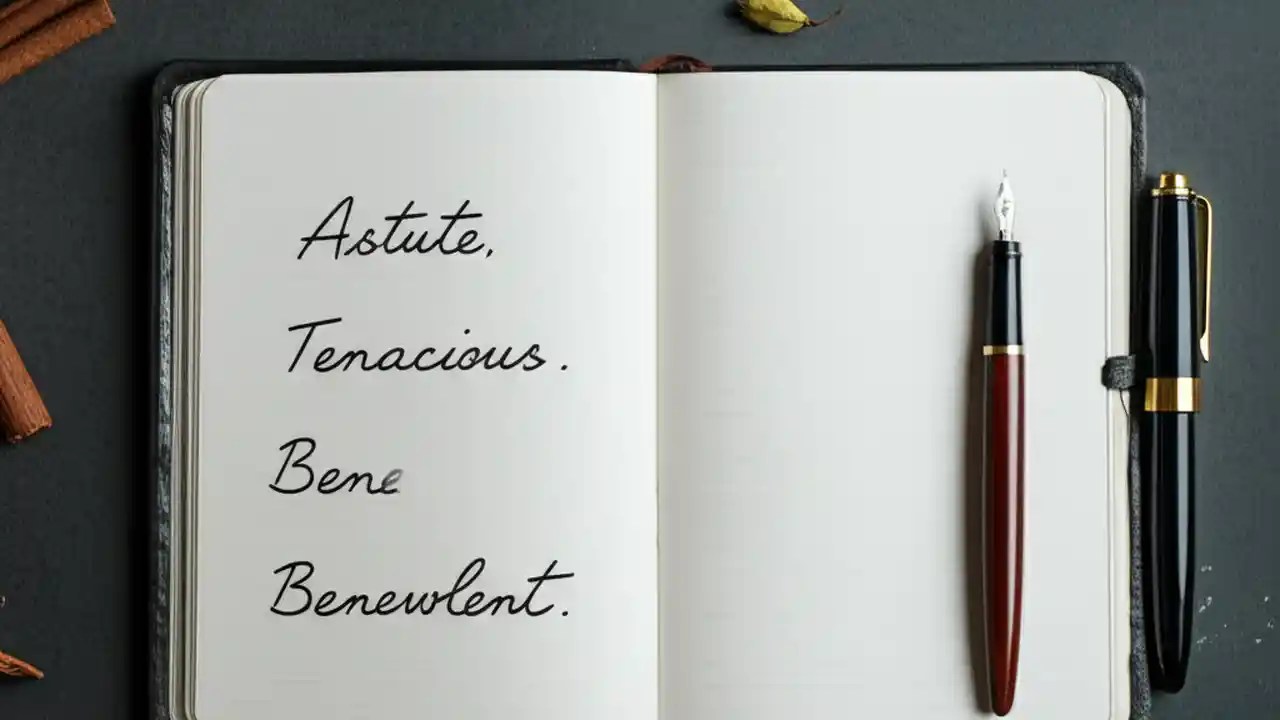 Astute.
Tenacious.
Bene
Benevolent.